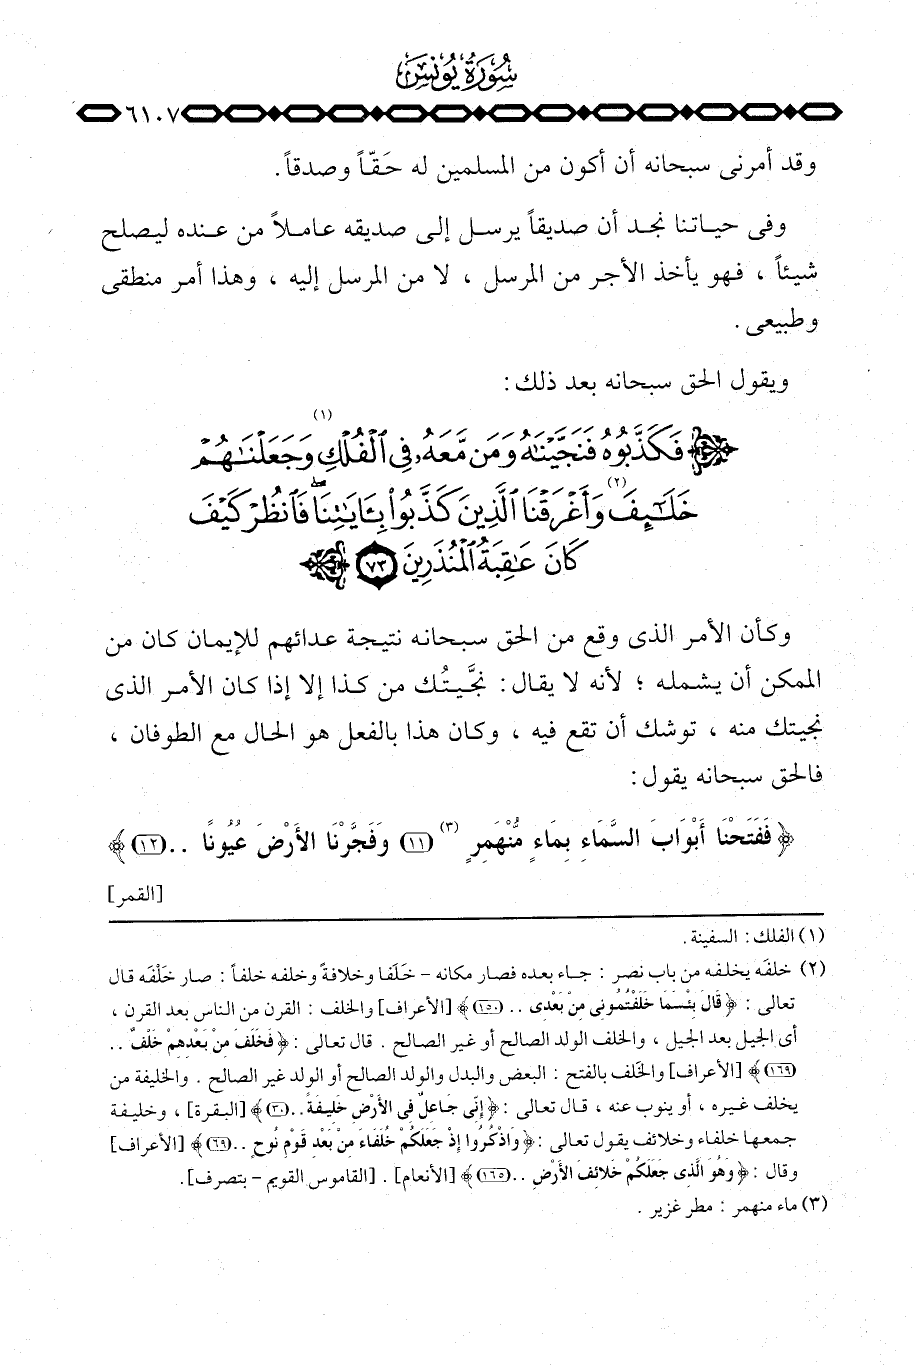 سُورَةُ يُونُسَ
٦١٠٧
وقد أمرنى سبحانه أن أكون من المسلمين له حَقّاً وصدقاً.
وفى حياتنا نجد أن صديقاً يرسل إلى صديقه عاملاً من عنده ليصلح
شيئاً ، فهو يأخذ الأجر من المرسل ، لا من المرسل إليه ، وهذا أمر منطقى
وطبيعى.
ويقول الحق سبحانه بعد ذلك:
فَكَذَّبُوهُ فَنَجَّيْنَٰهُ وَمَن مَّعَهُۥ فِى ٱلْفُلْكِ (١) وَجَعَلْنَٰهُمْ
خَلَٰٓئِفَ (٢) وَأَغْرَقْنَا ٱلَّذِينَ كَذَّبُوا۟ بِـَٔايَٰتِنَا ۖ فَٱنظُرْ كَيْفَ
كَانَ عَٰقِبَةُ ٱلْمُنذَرِينَ ٧٣
وكأن الأمر الذى وقع من الحق سبحانه نتيجة عدائهم للإيمان كان من
الممكن أن يشمله ؛ لأنه لا يقال: نجَّيتُك من كذا إلا إذا كان الأمر الذى
نجيتك منه ، توشك أن تقع فيه ، وكان هذا بالفعل هو الحال مع الطوفان ،
فالحق سبحانه يقول:
﴿ فَفَتَحْنَا أَبْوَابَ السَّمَاءِ بِمَاءٍ مُّنْهَمِرٍ (٣) (١١) وَفَجَّرْنَا الأَرْضَ عُيُونًا .. (١٢) ﴾
[القمر]
(١) الفلك: السفينة.
(٢) خلفَه يخلفه من باب نصر : جاء بعده فصار مكانه - خَلَفا وخلافةً وخلفه خلفاً : صار خَلْفَه قال
تعالى : ﴿ قَالَ بِئْسَمَا خَلَفْتُمُونِى مِنْ بَعْدِى .. (١٥٠) ﴾ [الأعراف] والخلف : القرن من الناس بعد القرن ،
أى الجيل بعد الجيل ، والخلف الولد الصالح أو غير الصالح . قال تعالى : ﴿ فَخَلَفَ مِنْ بَعْدِهِمْ خَلْفٌ ..
(١٦٩) ﴾ [الأعراف] والخَلف بالفتح : البعض والبدل والولد الصالح أو الولد غير الصالح . والخليفة من
يخلف غيره ، أو ينوب عنه ، قال تعالى : ﴿ إِنِّى جَاعِلٌ فِى الأَرْضِ خَلِيفَةً .. (٣٠) ﴾ [البقرة] ، وخليفة
جمعها خلفاء وخلائف يقول تعالى : ﴿ وَاذْكُرُوا إِذْ جَعَلَكُمْ خُلَفَاءَ مِنْ بَعْدِ قَوْمِ نُوحٍ .. (٦٩) ﴾ [الأعراف]
وقال : ﴿ وَهُوَ الَّذِى جَعَلَكُمْ خَلائِفَ الأَرْضِ .. (١٦٥) ﴾ [الأنعام] . [القاموس القويم - بتصرف].
(٣) ماء منهمر : مطر غزير .